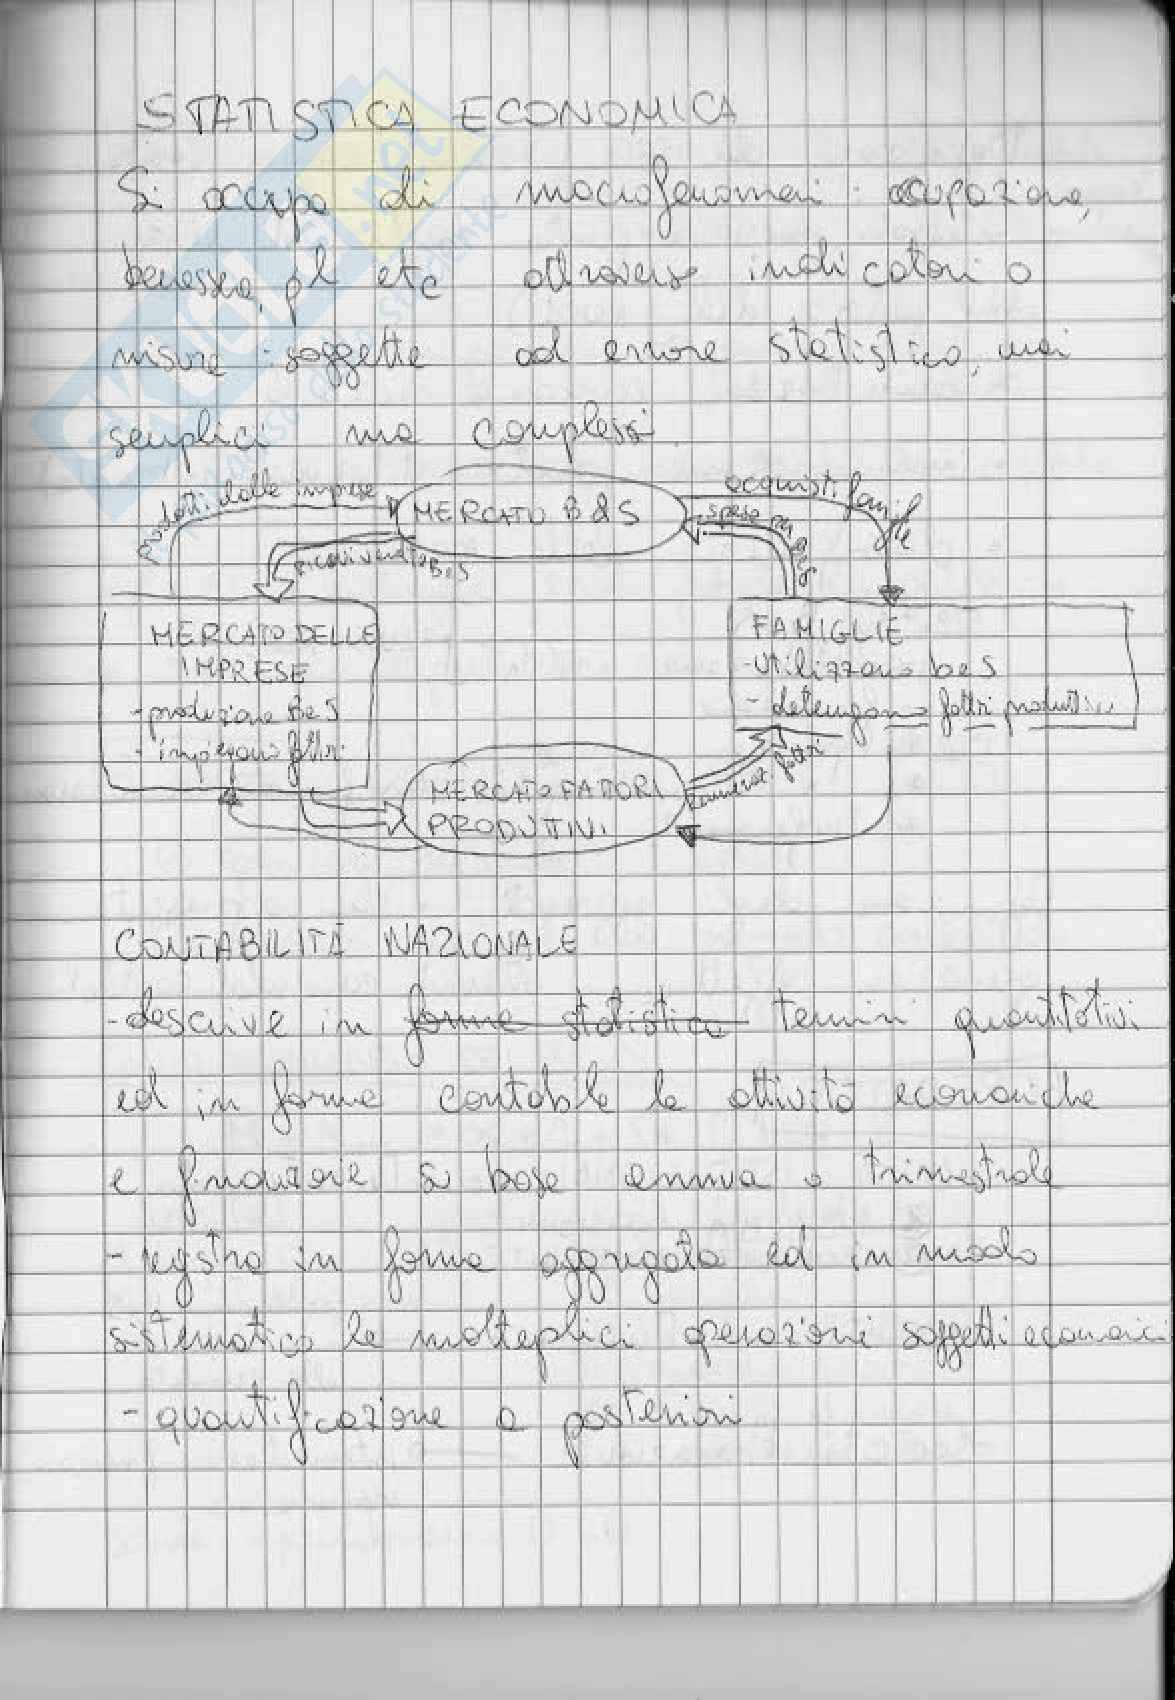 STATISTICA ECONOMICA
Si occupa di macrofenomeni: occupazione,
benessere, pl etc attraverso indicatori o
misure: soggette ad errore statistico, mai
semplici ma complessi.
prodotti dalle imprese
MERCATO B&S
acquisti famiglie
spese
ricavi vendita B e S
MERCATO DELLE
IMPRESE
-produzione B e S
-impiegano fattori
FAMIGLIE
-utilizzano b e S
- detengono fattori produttivi
MERCATO FATORI
PRODUTTIVI
remuneraz. fattori
CONTABILITÀ NAZIONALE
-descrive in forma statistica termini quantitativi
ed in forma contabile le attività economiche
e finanziarie a base annua o trimestrale
- registra in forma aggregata ed in modo
sistematico le molteplici operazioni soggetti economici
- quantificazione a posteriori
SKUOLA.net